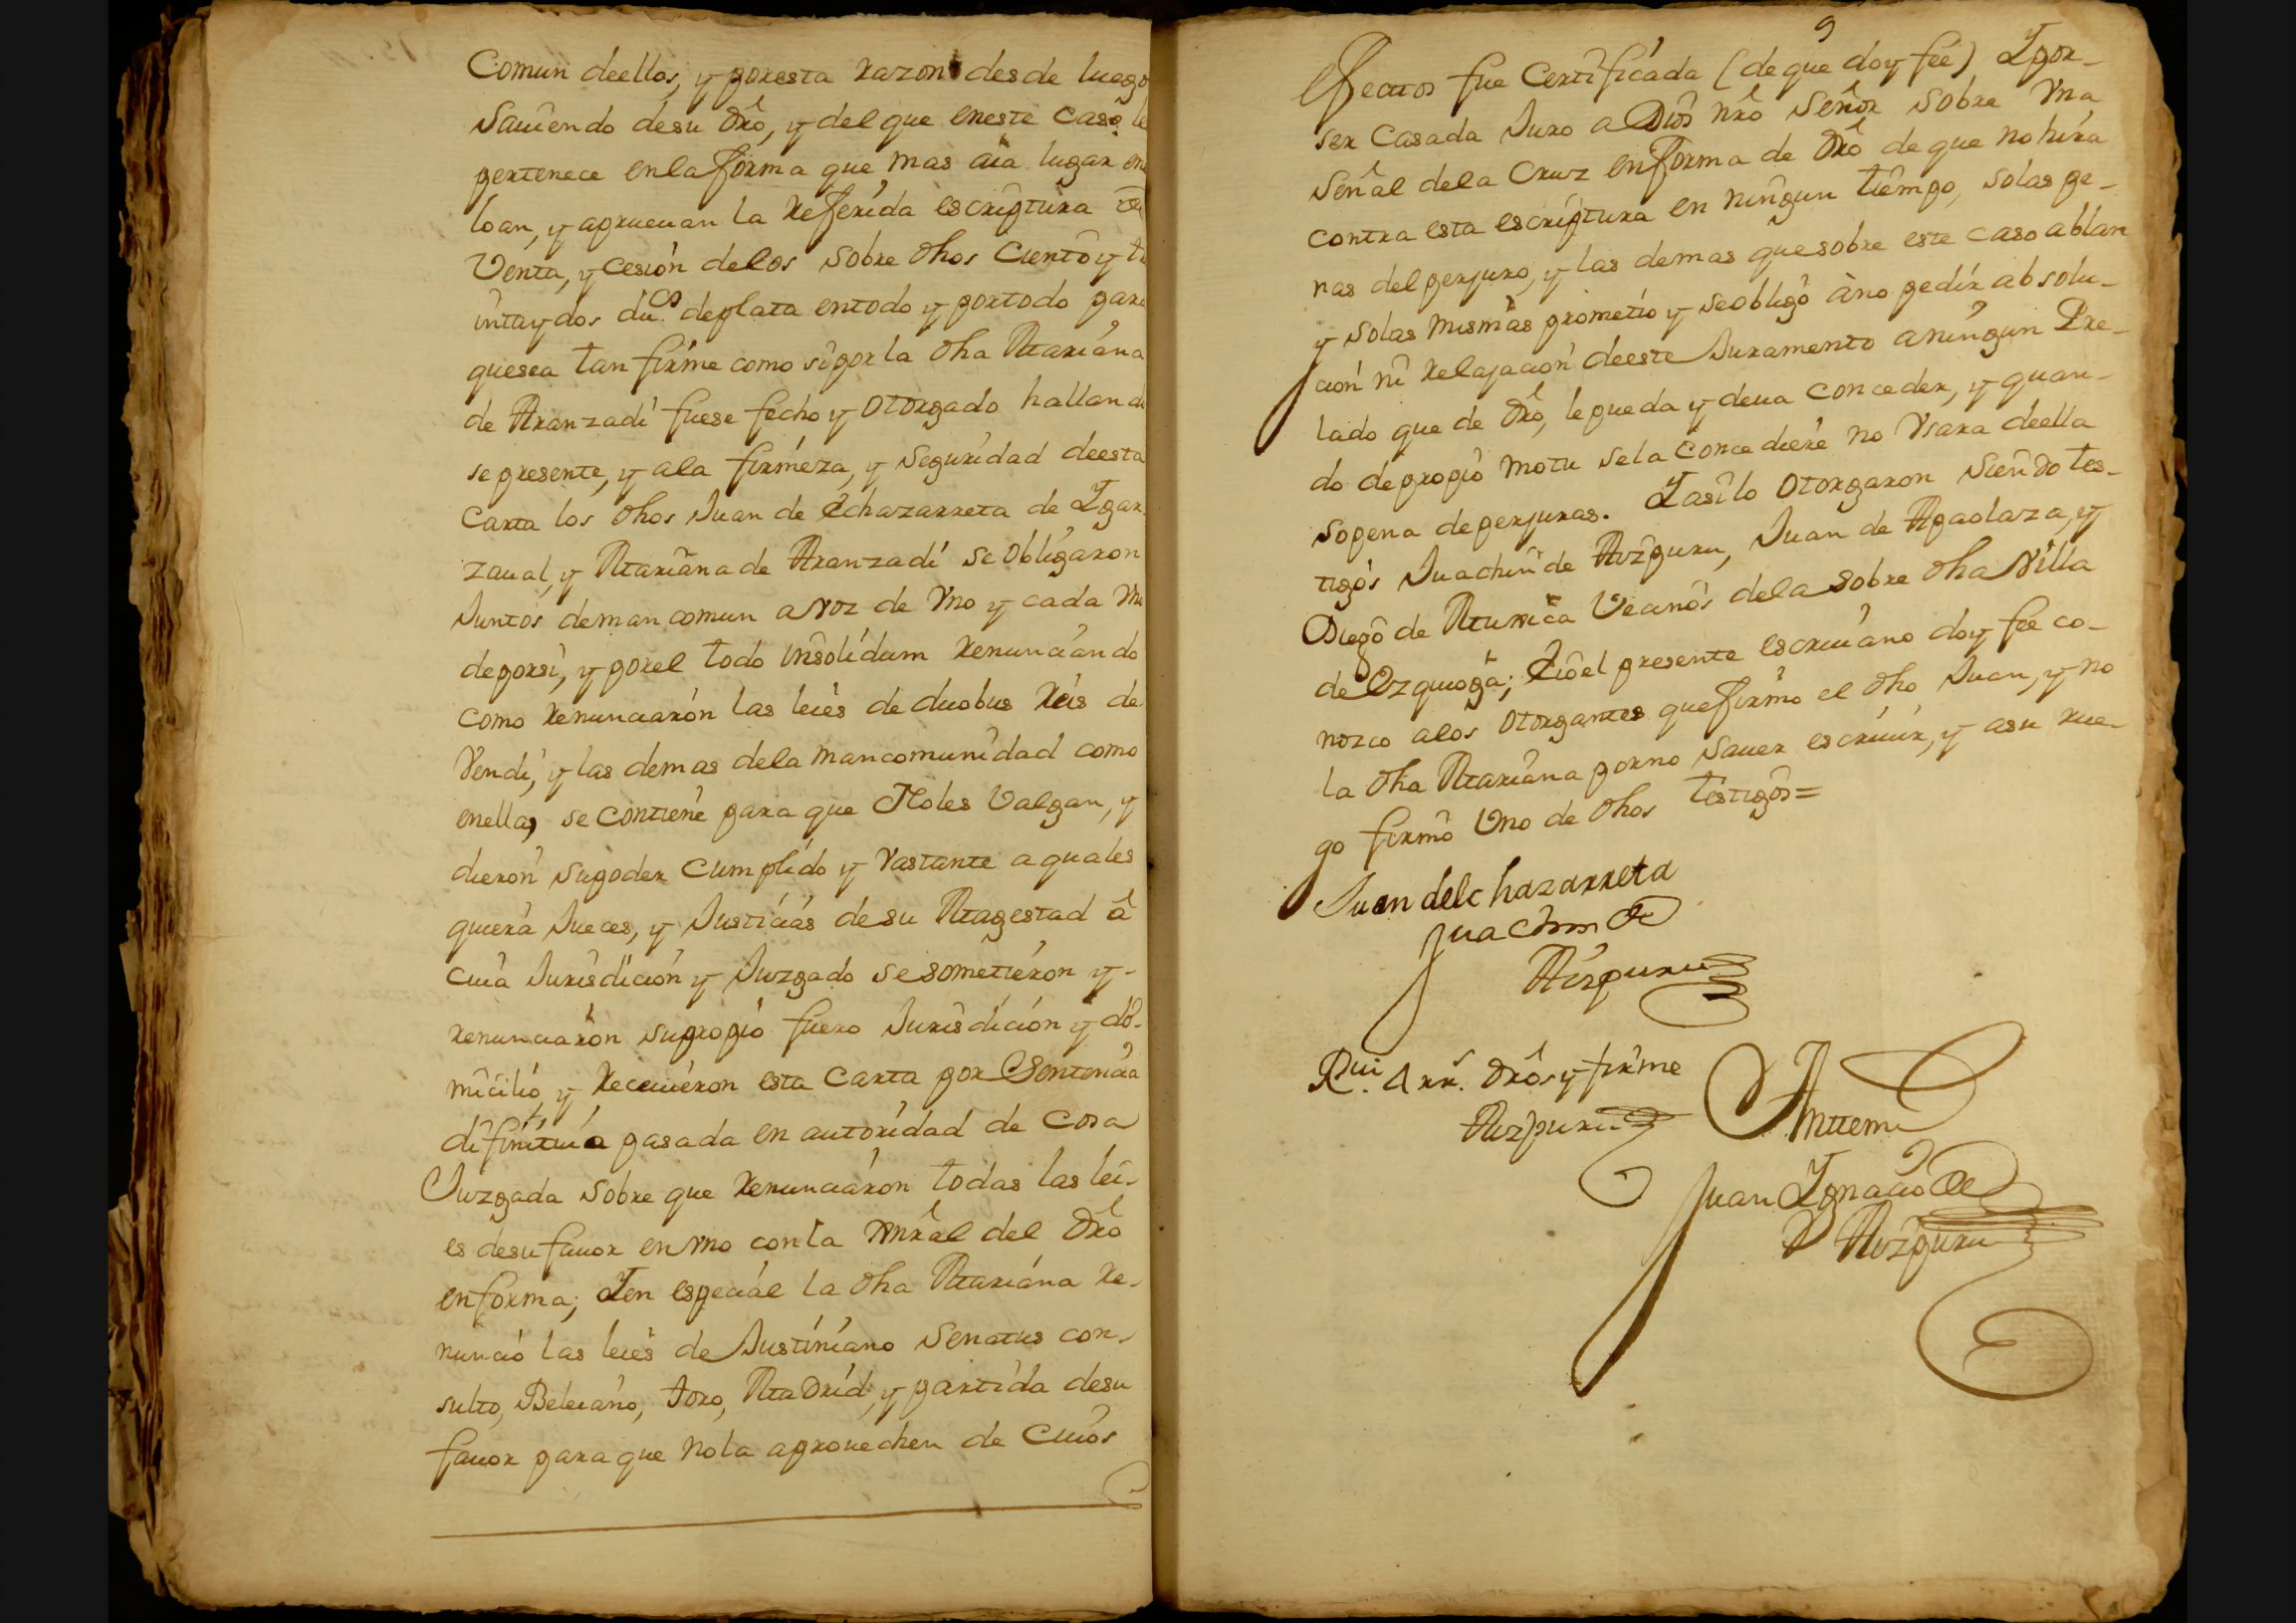 Comun deellos, y poresta razon desde luego
Sauiendo desu dro, y del que eneste caso le
pertenece enla forma que mas aia lugar en
loan, y aprueuan la referida escriptura de
Venta, y Cesión delos sobre dhos Ciento y tr
intaydos du.cs deplata entodo y portodo para
quesea tan firme como si por la dha Mariana
de Aranzadi fuese fecho y otorgado halland
se presente, y ala firmeza, y seguridad deesta
Carta los dhos Juan de Echazarreta de Igar
zaual, y Mariana de Aranzadi se obligaron
Juntos deman comun a voz de Vno y cada Vn
deporsi, y porel todo insolidum renunciando
como renunciarón las leies de duobus reis de
Vendi, y las demas dela mancomunidad como
enella, se contiene para que Noles Valgan, y
dieron supoder cumplido y Vastante a quales
quiera Jueces, y Justicias de su Magestad â
cuia Jurisdición y Juzgado se sometiéron y-
renunciarón supropio fuero Jurisdición y do-
micilio, y receuieron esta Carta por Sentencia
difinitiua pasada en autoridad de Cosa
Juzgada sobre que renunciáron todas las lei-
es desu fauor en vno con la Gnral del dro
en forma; Yen especial la dha Mariana re-
nunció las leies de Justiniano Senatus con-
sulto, Beleiano, toro, Madrid, y partida desu
fauor para que nola aprouechen de Cuios
9
efectos fue Certificada (de que doy feé) Ypor-
ser casada Juro a Dios nro Señor sobre Vna
Señal dela Cruz en forma de dro de que no hira
contra esta escriptura en ningun tiempo, solas pe-
nas del perjuro, y las demas quesobre este caso ablan
y solas mismas prometio y seobligô âno pedir absolu-
ción ni relajación deeste Juramento aningun Pre-
lado que de dro, le pueda y deua conceder, y quan-
do de propio motu sela concediere no Vsara deella
sopena de perjuras. Yasilo otorgaron siendo tes-
tigos Juachin de Aizpuru, Juan de Apaolaza, y
Diego de Muxica Vecinos dela sobre dha Villa
de Ezquioga; Eioel presente escriuano doy feé co-
nozco alos otorgantes quefirmo el dho Juan, y no
la dha Mariana porno sauer escriuir, y asu rue-
go firmo Vno de dhos testigos=
Juan delchazarreta
Juachin de
Aizpuru
Rui. 4 rr.s dros y firme
Aizpuru
Anttemi
Juan Ignacio de
Aizpuru